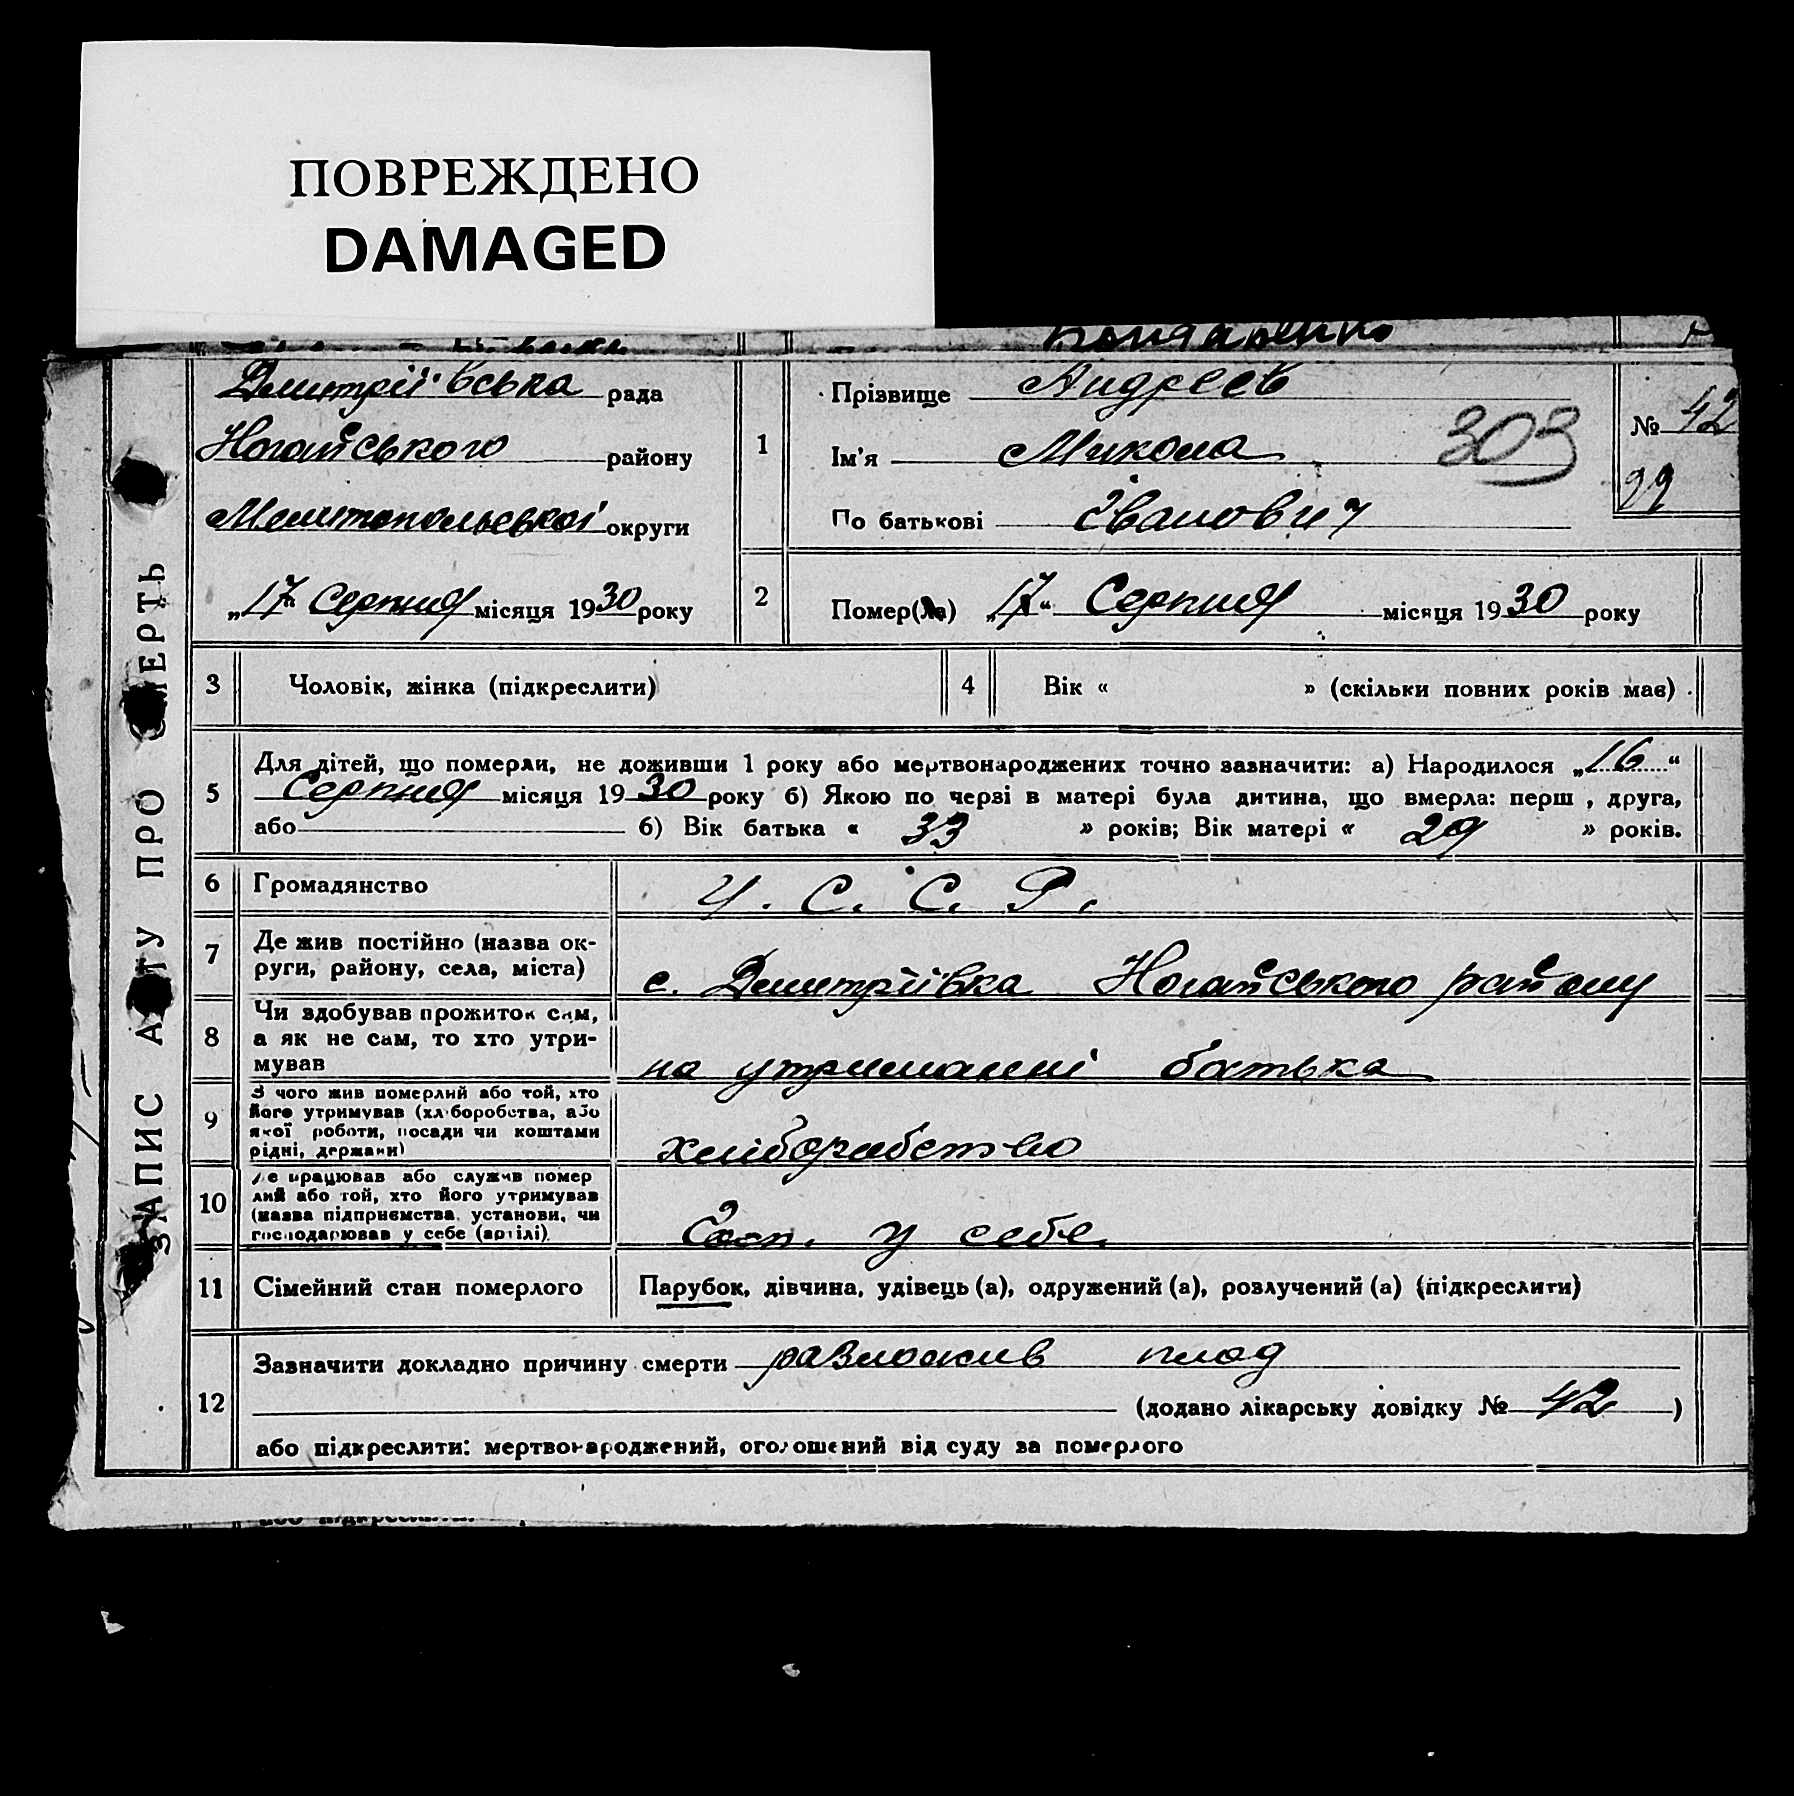 ПОВРЕЖДЕНО
DAMAGED
Бондаренко
ЗАПИС АКТУ ПРО СМЕРТЬ
Дмитріївська рада
Ногайського району
Мелитопольської округи
„17" Серпня місяця 1930 року
1
Прізвище Андреєв
Ім'я Микола
По батькові Іванович
303
№ 42
99
2
Помер(ла) „17" Серпня місяця 1930 року
3 Чоловік, жінка (підкреслити)
4 Вік « » (скільки повних років мав)
5 Для дітей, що померли, не доживши 1 року або мертвонароджених точно зазначити: а) Народилося „16"
Серпня місяця 1930 року б) Якою по черзі в матері була дитина, що вмерла: перш , друга,
або б) Вік батька « 33 » років; Вік матері « 29 » років.
6 Громадянство У. С. С. Р.
7 Де жив постійно (назва ок-
руги, району, села, міста)
с. Дмитріївка Ногайського району
8 Чи здобував прожиток сам,
а як не сам, то хто утри-
мував
на утриманні батька
9 З чого жив померлий або той, хто
його утримував (хліборобства, або
якої роботи, посади чи коштами
рідні, держави)
хліборобство
10 Де працював або служив помер
лий або той, хто його утримував
(назва підприємства, установи, чи
господарював у себе (артілі).
у себе
11 Сімейний стан померлого Парубок, дівчина, удівець (а), одружений (а), розлучений (а) (підкреслити)
12 Зазначити докладно причину смерти плод
(додано лікарську довідку № 42 )
або підкреслити: мертвонароджений, оголошений від суду за померлого